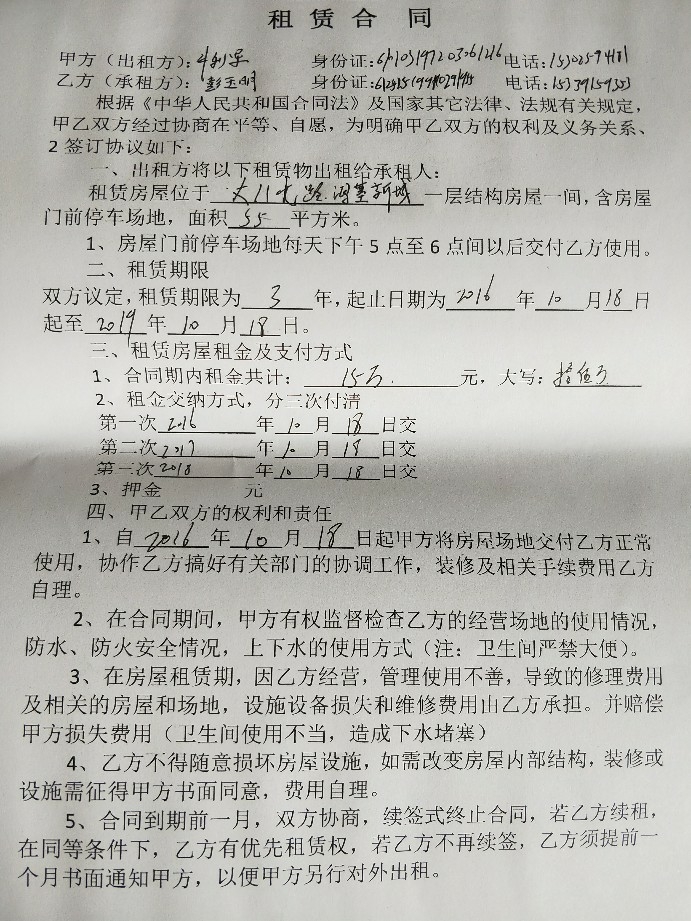 租赁合同
甲方（出租方）： 身份证： 电话：
乙方（承租方）：彭玉明 身份证： 电话：
根据《中华人民共和国合同法》及国家其它法律、法规有关规定，
甲乙双方经过协商在平等、自愿，为明确甲乙双方的权利及义务关系、
2签订协议如下：
一、出租方将以下租赁物出租给承租人：
租赁房屋位于 一层结构房屋一间，含房屋
门前停车场地，面积55平方米。
1、房屋门前停车场地每天下午5点至6点间以后交付乙方使用。
二、租赁期限
双方议定，租赁期限为3年，起止日期为2016年10月18日
起至2019年10月18日。
三、租赁房屋租金及支付方式
1、合同期内租金共计：15万.元，大写：
2、租金交纳方式，分三次付清
第一次2016年10月18日交
第二次2017年10月18日交
第三次2018年10月18日交
3、押金 元
四、甲乙双方的权利和责任
1、自2016年10月18日起甲方将房屋场地交付乙方正常
使用，协作乙方搞好有关部门的协调工作，装修及相关手续费用乙方
自理。
2、在合同期间，甲方有权监督检查乙方的经营场地的使用情况，
防水、防火安全情况，上下水的使用方式（注：卫生间严禁大便）。
3、在房屋租赁期，因乙方经营，管理使用不善，导致的修理费用
及相关的房屋和场地，设施设备损失和维修费用由乙方承担。并赔偿
甲方损失费用（卫生间使用不当，造成下水堵塞）
4、乙方不得随意损坏房屋设施，如需改变房屋内部结构，装修或
设施需征得甲方书面同意，费用自理。
5、合同到期前一月，双方协商，续签式终止合同，若乙方续租，
在同等条件下，乙方有优先租赁权，若乙方不再续签，乙方须提前一
个月书面通知甲方，以便甲方另行对外出租。